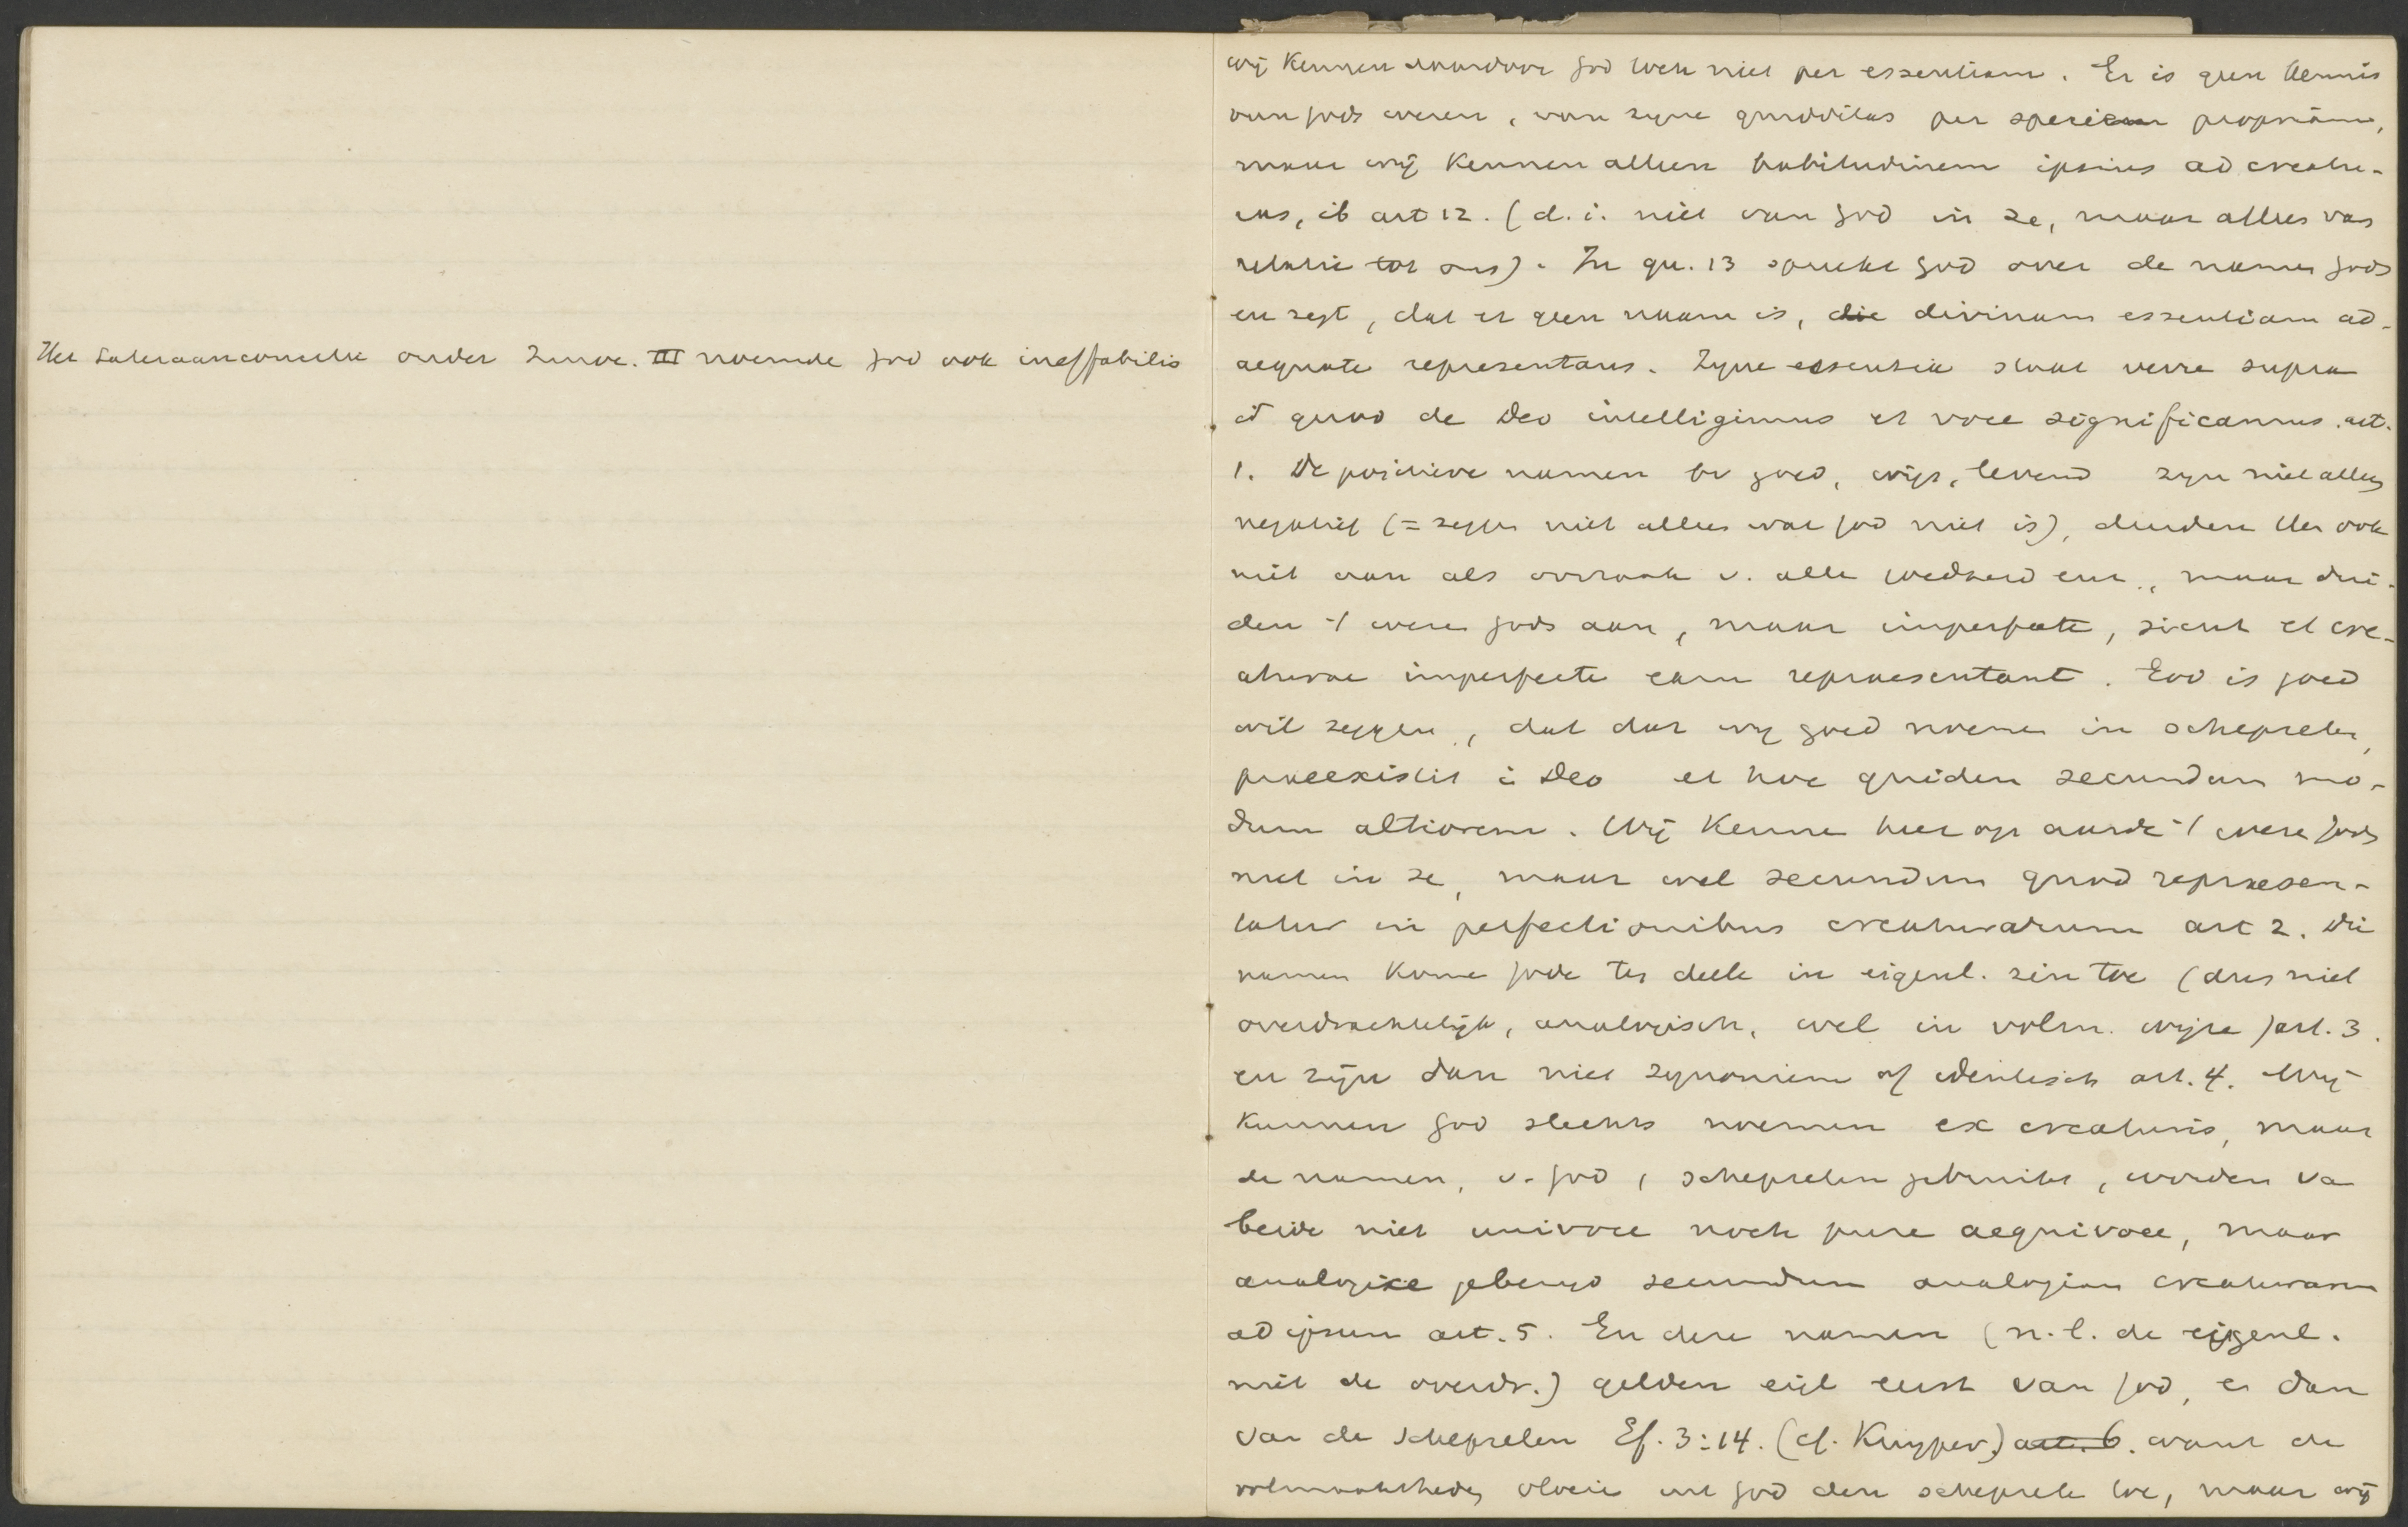 Het Lateraanconcilie onder Innoc. III noemde God ook ineffabilis
wij kennen daardoor God toch niet per essentiam. Er is geen kennis
van Gods wezen, van zijne quidditas per speciem propriam,
maar wij kennen alleen habitudinem ipsius ad creatu-
ras, ib art 12. (d. i. niet van God in se, maar alleen van
relatie tot ons). In qu. 13 spreekt God over de namen Gods
en zegt, dat er geen naam is, die divinam essentiam ad-
aequate representans. Zijne essentia staat verre supra
id quod de Deo intelligimus et voce significamus. art.
1. De positieve namen bv goed, wijs, levend zijn niet alleen
negatief (= zeggen niet alleen wat God niet is), duiden Hem ook
niet aan als oorzaak v. alle goedheid enz., maar dui-
den 't wezen Gods aan, maar imperfecte, sicut et cre-
aturae imperfecte eam repraesentant. God is goed
wil zeggen, dat dat wij goed noemen in schepselen,
praeexistit i Deo et hoc quidem secundum mo-
dum altiorem. Wij kennen hier op aarde 't wezen Gods
niet in se, maar wel secundum quod repraesen-
tatur in perfectionibus creaturarum art 2. Die
namen komen Gode ten deele in eigenl. zin toe (dus niet
overdrachtelijk, analogisch, wel in volm. wijze) art. 3.
en zijn dan niet synoniem of identisch art. 4. Wij
kunnen God slechts noemen ex creaturis, maar
de namen, v. God, schepselen gebruikt, worden va
beide niet univoce noch pure aequivoce, maar
analogice gebezigd secundum analogiam creaturarum
ad ipsum art. 5. En deze namen (n.l. de eigenl.
niet de overdr.) gelden eigl eerst van God, en dan
van de schepselen Ef. 3:14. (cf. Kuyper.) art. 6. want de
volmaaktheden vloeien uit God den schepselen toe, maar wij